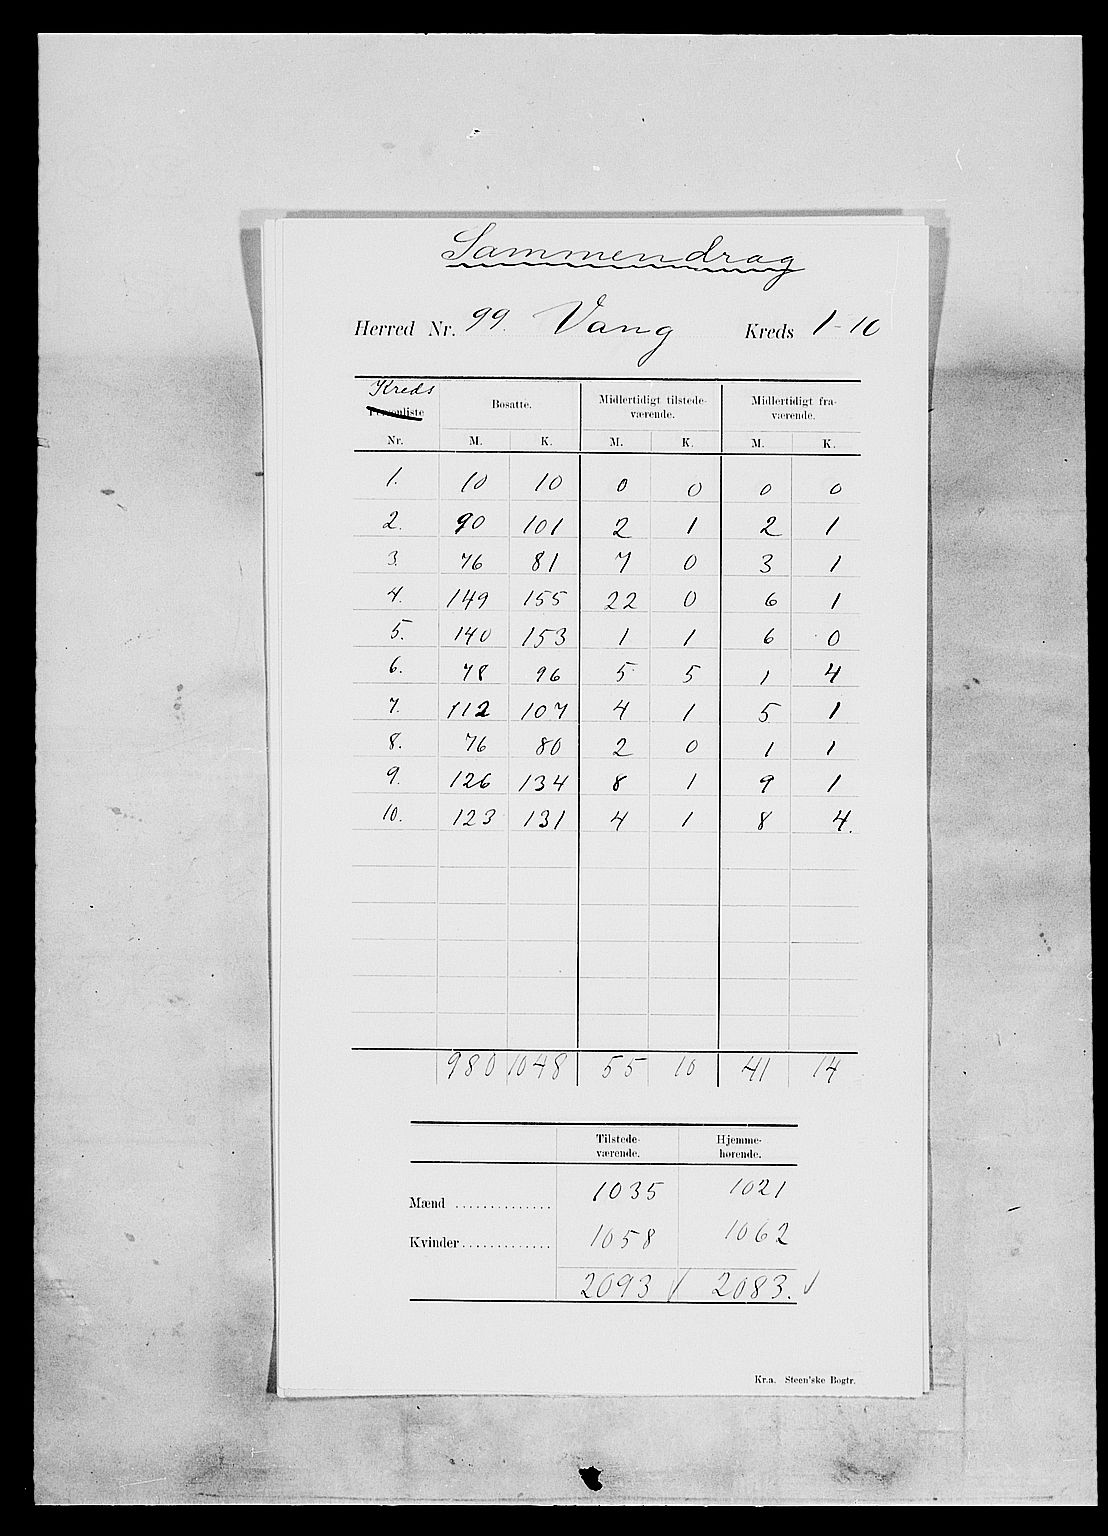 Sammendrag
Herred Nr. 99. Vang Kreds 1-10
Kreds
Personliste Bosatte. Midlertidigt tilstede- Midlertidigt fra-
værende. værende.
Nr. M. K. M. K. M. K.
1. 10 10 0 0 0 0
2. 90 101 2 1 2 1
3. 76 81 7 0 3 1
4. 149 155 22 0 6 1
5. 140 153 1 1 6 0
6. 78 96 5 5 1 4
7. 112 107 4 1 5 1
8. 76 80 2 0 1 1
9. 126 134 8 1 9 1
10. 123 131 4 1 8 4.
980 1048 55 10 41 14
Tilstede- Hjemme-
værende. hørende.
Mænd .............. 1035 1021
Kvinder ............. 1058 1062
2093 2083.
Kr.a. Steen'ske Bogtr.